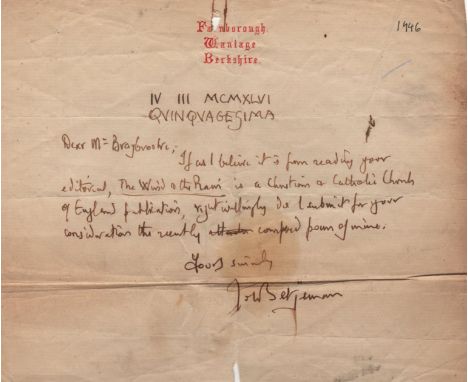 Farnborough.
Wantage
Berkshire.
1946
IV III MCMXLVI
QVINQVAGESIMA
Dear Mr Braybrooke,
If as I believe it is from reading your
editorial, The Wind & the Rain is a Christian & Catholic Church
of England publication, right willingly do I submit for your
consideration the recently composed poem of mine.
Yours sincerely
John Betjeman